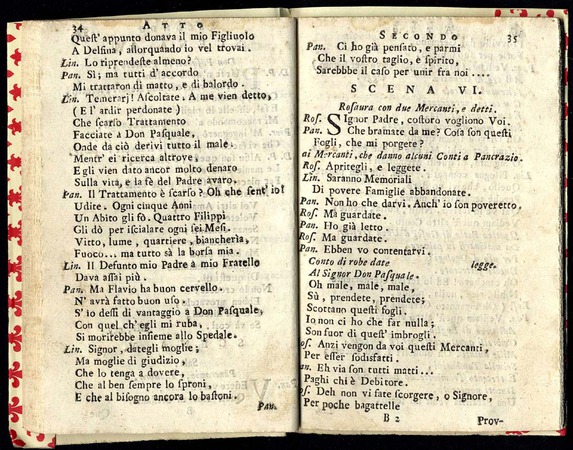 34
ATTO
Quest' appunto donava il mio Figliuolo
A Delfina, allorquando io vel trovai.
Lin. Lo riprendeste almeno?
Pan. Sì; ma tutti d'accordo
Mi trattaron di matto, e di balordo.
Lin. Temerarj! Ascoltate. A me vien detto,
( E l' ardir perdonate )
Che scarso Trattamento
Facciate a Don Pasquale,
Onde da ciò derivi tutto il male.
Mentr' ei ricerca altrove,
E gli vien dato ancor molto denato
Sulla vita, e la fè del Padre avaro.
Pan. Il Trattamento è scarso? Oh che sent' io!
Udite. Ogni cinque Anni
Un Abito gli fò. Quattro Filippi
Gli dò per iscialare ogni sei Mesi.
Vitto, lume, quartiere, biancheria,
Fuoco... ma tutto sà la borsa mia.
Lin. Il Defunto mio Padre a mio Fratello
Dava assai più.
Pan. Ma Flavio ha buon cervello.
N' avrà fatto buon uso.
S' io dessi di vantaggio a Don Pasquale,
Con quel ch' egli mi ruba,
Si morirebbe insieme allo Spedale.
Lin. Signor, dategli moglie;
Ma moglie di giudizio,
Che lo tenga a dovere,
Che al ben sempre lo sproni,
E che al bisogno ancora lo bastoni.
Pan.
SECONDO
35
Pan. Ci ho già pensato, e parmi
Che il vostro taglio, e spirito,
Sarebbe il caso per unir fra noi ....
SCENA VI.
Rosaura con due Mercanti, e detti.
Ros. SIgnor Padre, costoro vogliono Voi.
Pan. Che bramate da me? Cosa son questi
Fogli, che mi porgete?
ai Mercanti, che danno alcuni Conti a Pancrazio.
Ros. Apritegli, e leggete.
Lin. Saranno Memoriali
Di povere Famiglie abbandonate.
Pan. Non ho che darvi. Anch' io son poveretto,
Ros. Ma guardate.
Pan. Ho già letto.
Ros. Ma guardate.
Pan. Ebben vo contentarvi.
Conto di robe date
legge.
Al Signor Don Pasquale.
Oh male, male, male,
Sù, prendete, prendete;
Scottano questi fogli.
Io non ci ho che far nulla;
Son fuor di quest' imbrogli.
os. Anzi vengon da voi questi Mercanti,
Per esser sodisfatti.
an. Eh via son tutti matti...
Paghi chi è Debitore.
os. Deh non vi fate scorgere, o Signore,
Per poche bagattelle
B 2
Prov-